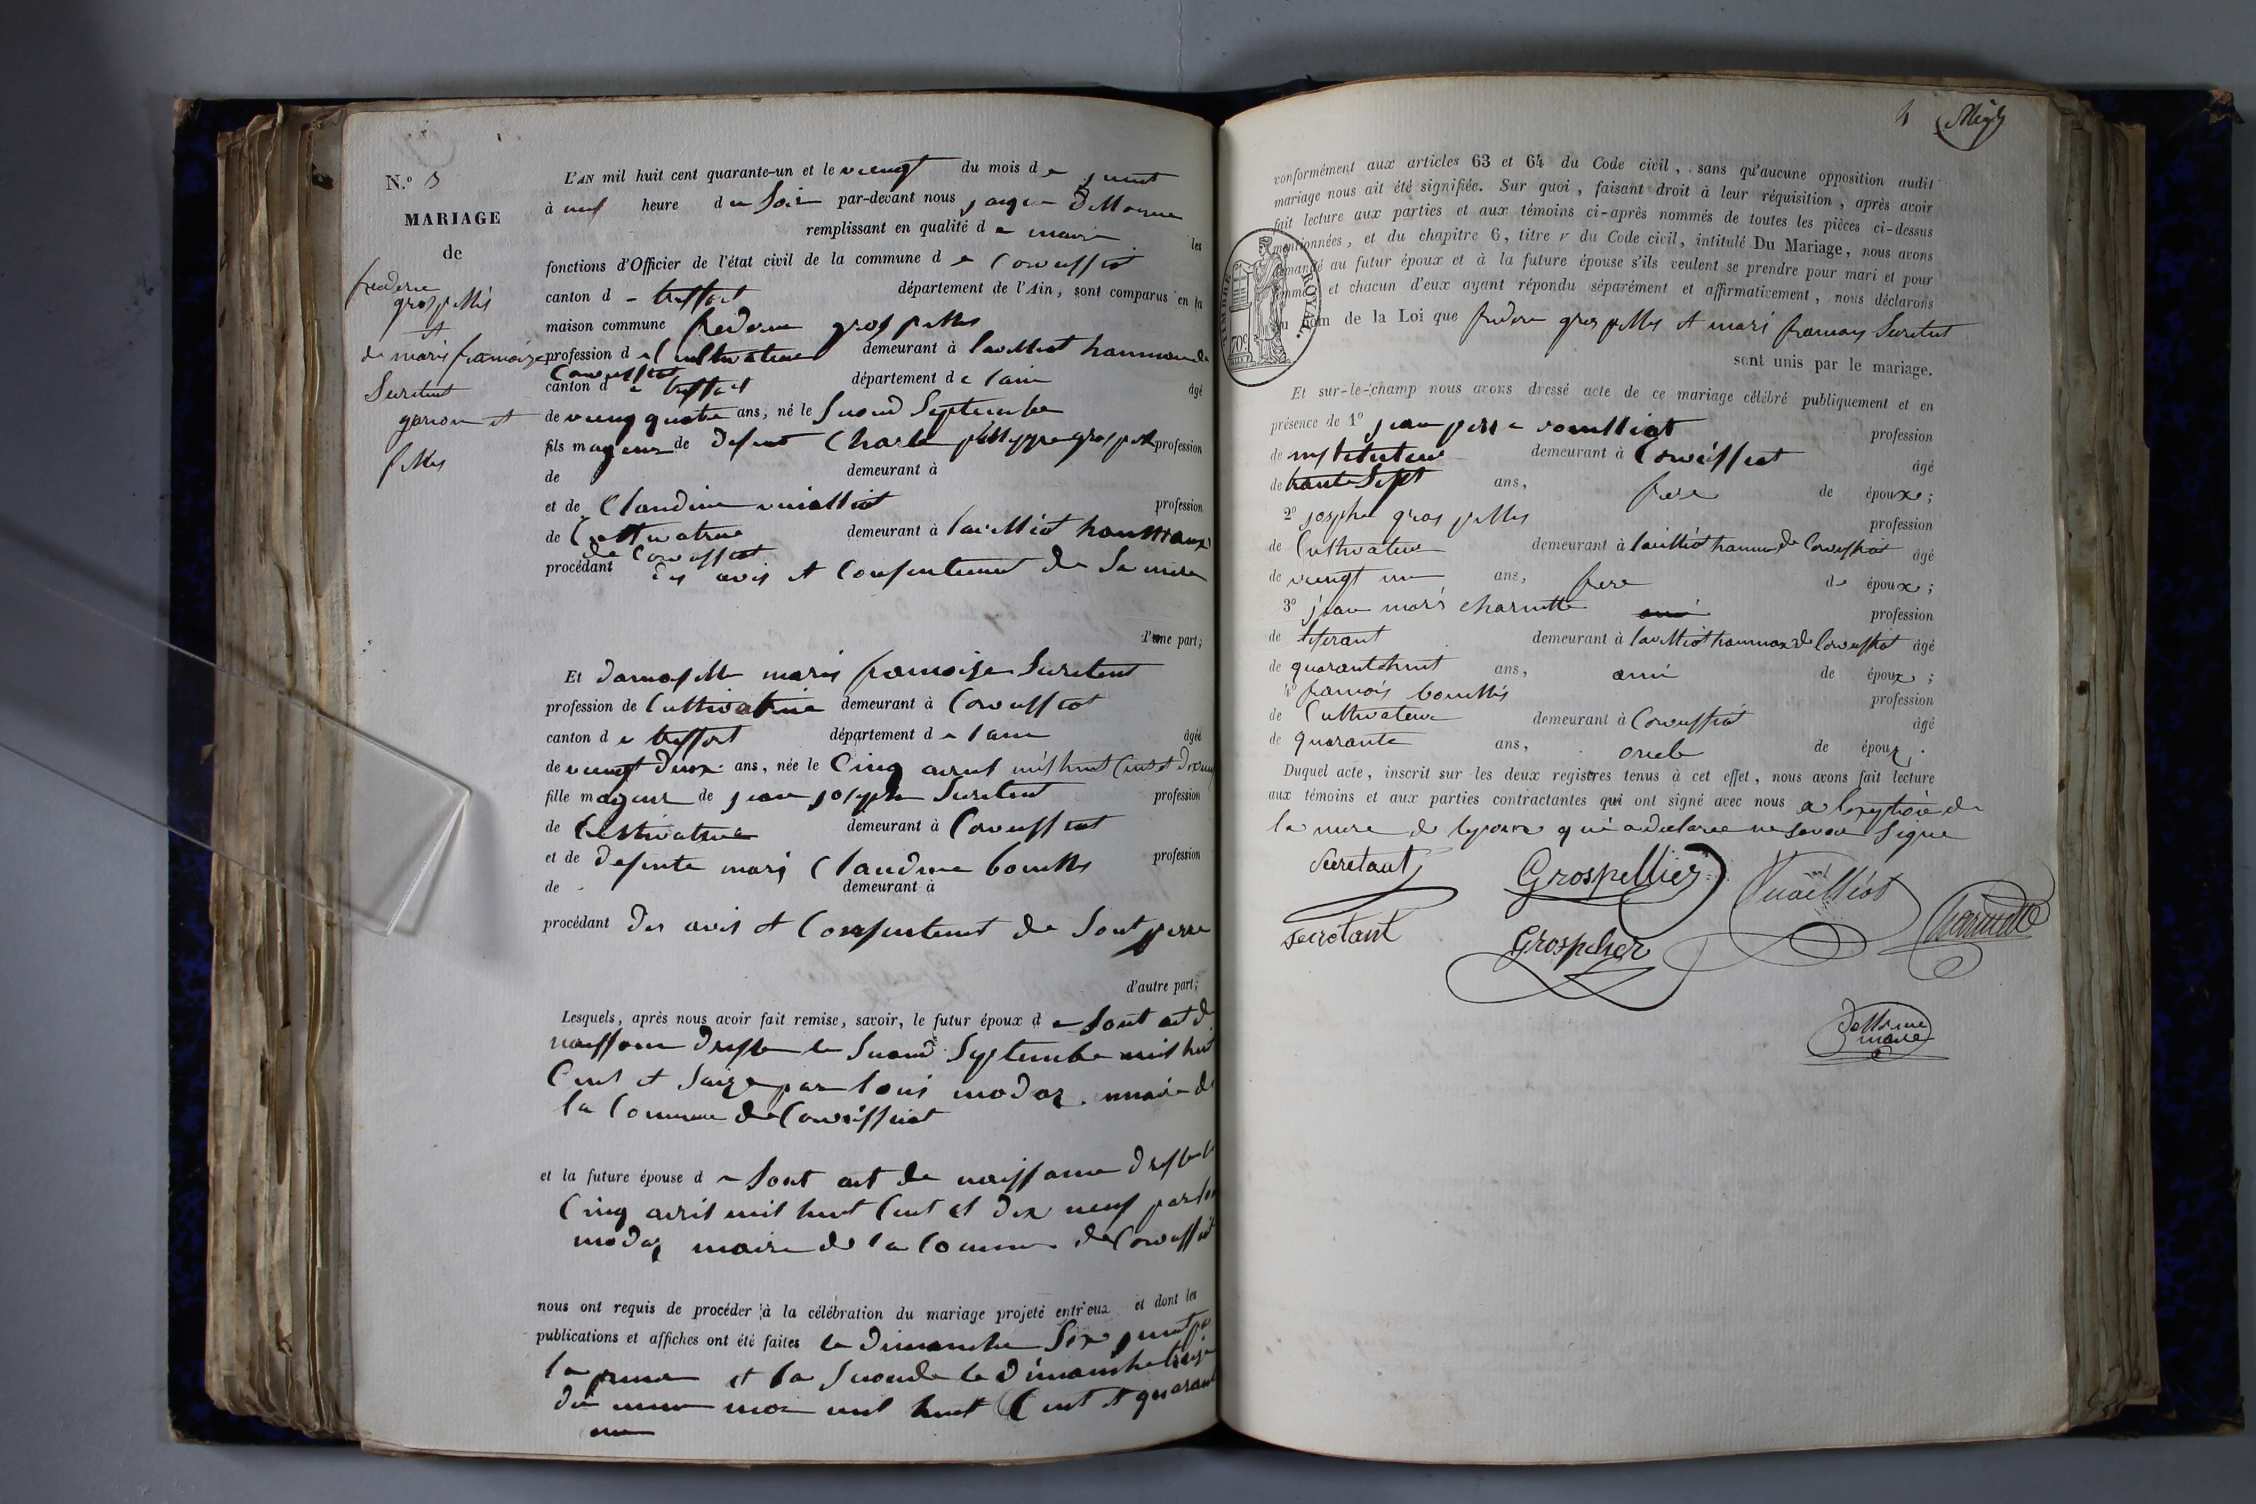 N.º 5
MARIAGE
de
frederic
grospellis
et
de marie francoise
Suretent
garcon et
filles
L'AN mil huit cent quarante-un et le vuengt du mois de juint
à neuf heure du Soir par-devant nous
remplissant en qualité de maire les
fonctions d'Officier de l'état civil de la commune de Corveissiat
canton d treffort département de l'Ain, sont comparus en la
maison commune frederic grospelles
profession de Cultivateur demeurant à lavilliat hammau de
Corveissiat
canton de treffort département de lain âgé
de vuengquatre ans, né le Segond Septembre
fils mageur de defunt Charle phillyppe grospell profession
de demeurant à
et de Claudine vuialliat profession
de Cultivatrice demeurant à lavilliat hammaux
de Corveissiat
procédant des avis et Consentement de Sa mere
d'une part;
Et damoiselle marie francoise Suretent
profession de Cultivatrice demeurant à Corveissiat
canton de treffort département de lain âgée
de vuengt deux ans, née le Cinq avril mil huit Cent et dixneuf
fille mageur de jean josephe Suretent profession
de Cultivateur demeurant à Corveissiat
et de defunte marie Claudine bouilles profession
de demeurant à
procédant des avis et Consentement de Sont perre
d'autre part;
Lesquels, après nous avoir fait remise, savoir, le futur époux de Sont act de
naissance dressé le Segond Septembre mil huit
Cent et Saize par louis modas maire de
la Commune de Corveissiat
et la future épouse de Sont act de naissance dressé le
Cinq avril mil huit Cent et dix neuf par louis
modas maire de la Commune de Corveissiat
nous ont requis de procéder à la célébration du mariage projeté entr'eux et dont les
publications et affiches ont été faites le dimanche Six juint pour
la premiere et la Segonde le dimanche traise
du meme mois mil huit Cent et quarant
une
4
conformément aux articles 63 et 64 du Code civil, sans qu'aucune opposition audit
mariage nous ait été signifiée. Sur quoi, faisant droit à leur réquisition, après avoir
fait lecture aux parties et aux témoins ci-après nommés de toutes les pièces ci-dessus
mentionnées, et du chapitre 6, titre v du Code civil, intitulé Du Mariage, nous avons
demandé au futur époux et à la future épouse s'ils veulent se prendre pour mari et pour
femme et chacun d'eux ayant répondu séparément et affirmativement, nous déclarons
au nom de la Loi que frederic grospelles et marie francoise Suretent
sont unis par le mariage.
TIMBRE ROYAL
70c
Et sur-le-champ nous avons dressé acte de ce mariage célébré publiquement et en
présence de 1º jean pierre vuailliat profession
de instituteur demeurant à Corveissiat âgé
de trante Sept ans, frere de époux;
2º josephe grospelles profession
de Cultivateur demeurant à lavilliat hammau de Corveissiat âgé
de vuengt un ans, frere de époux;
3º jean marie charnette profession
de demeurant à lavilliat hammau de Corveissiat âgé
de quarantehuit ans, ami de époux;
4º francois bouilles profession
de Cultivateur demeurant à Corveissiat âgé
de quarante ans, oncle de époux.
Duquel acte, inscrit sur les deux registres tenus à cet effet, nous avons fait lecture
aux témoins et aux parties contractantes qui ont signé avec nous a lexption de
la mere de lepoux qui a declaree ne Savoir Signe
Secretant
Grospellier
Vuailliat
Charnette
Secretant
Grospelier
maire